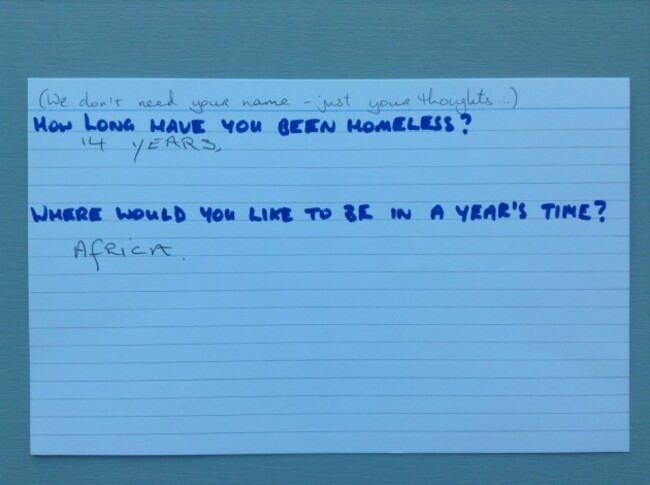 (We don't need your name - just your thoughts...)
HOW LONG HAVE YOU BEEN HOMELESS?
14 YEARS,
WHERE WOULD YOU LIKE TO BE IN A YEAR'S TIME?
AfRICA.